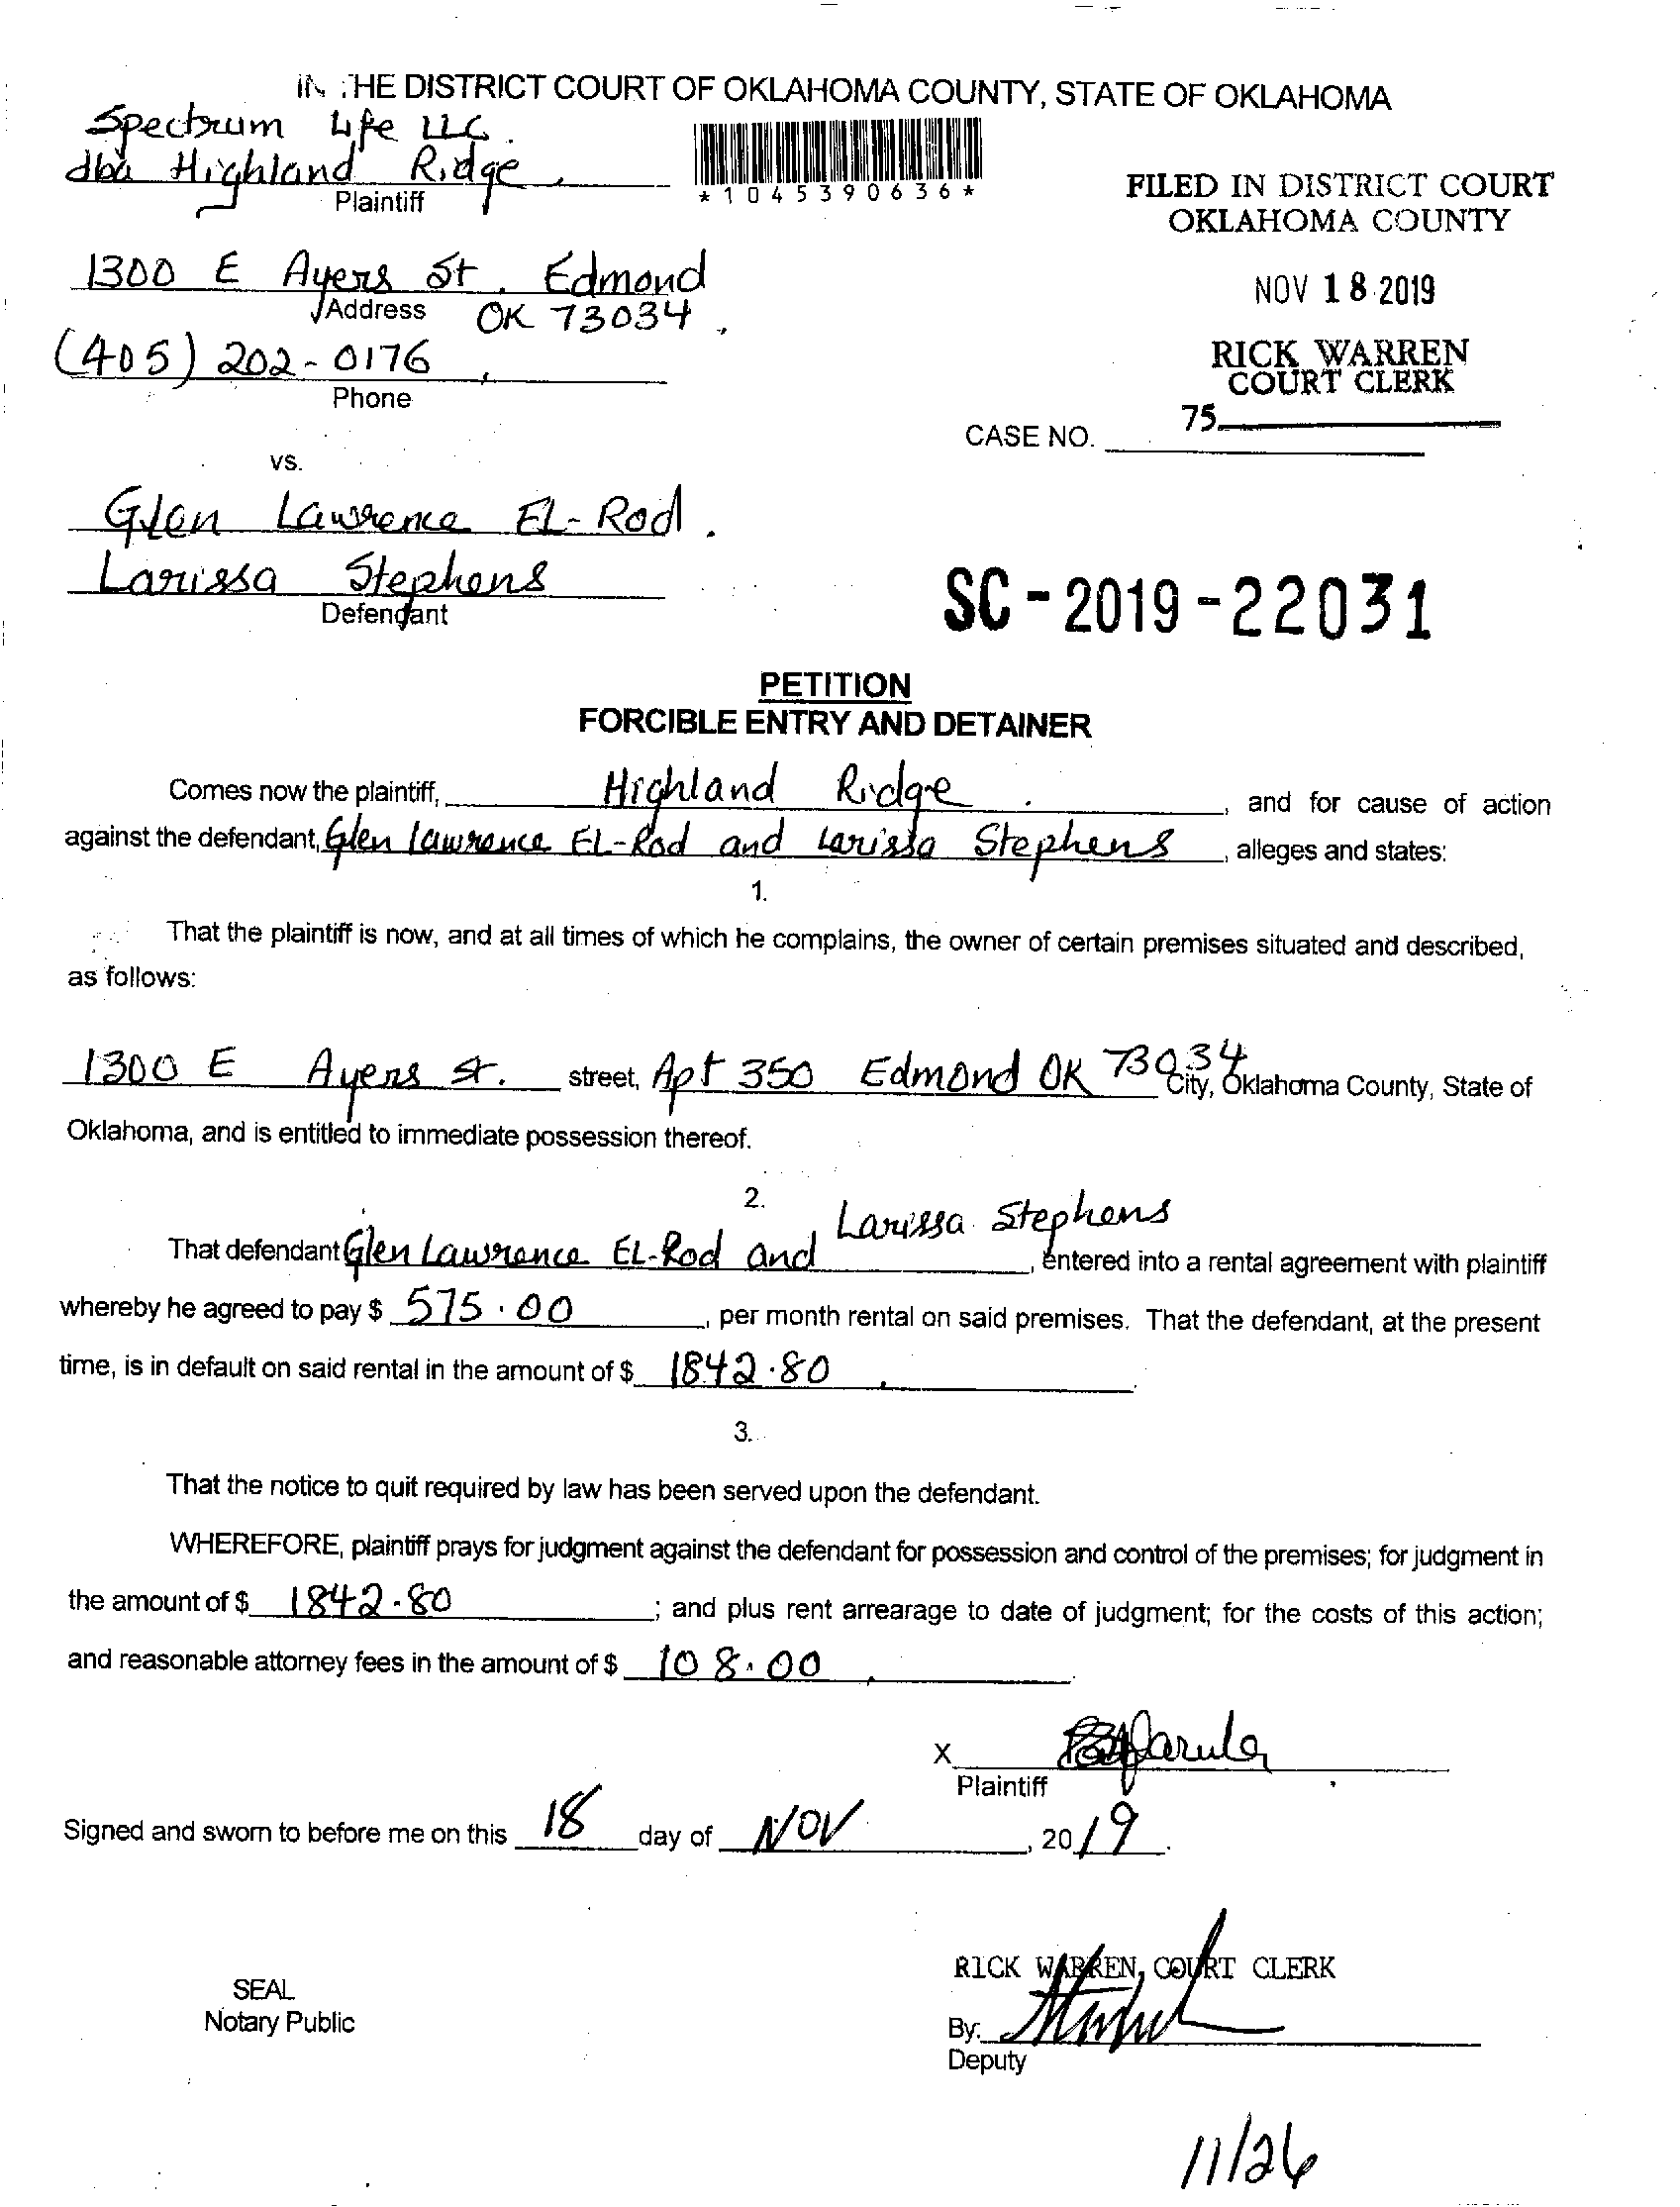 IN THE DISTRICT COURT OF OKLAHOMA COUNTY, STATE OF OKLAHOMA
Spectrum Life LLC.
dba Highland Ridge,
Plaintiff
*1045390636*
FILED IN DISTRICT COURT
OKLAHOMA COUNTY
NOV 18 2019
RICK WARREN
COURT CLERK
75
1300 E Ayers St, Edmond
Address OK 73034,
(405) 202-0176,
Phone
CASE NO.
vs.
Glen Lawrence EL-Rod.
Larissa Stephens
Defendant
SC-2019-22031
PETITION
FORCIBLE ENTRY AND DETAINER
Comes now the plaintiff, Highland Ridge, and for cause of action
against the defendant, Glen Lawrence EL-Rod and Larissa Stephens, alleges and states:
1.
That the plaintiff is now, and at all times of which he complains, the owner of certain premises situated and described,
as follows:
1300 E Ayers St. street, Apt 350 Edmond OK 73034 City, Oklahoma County, State of
Oklahoma, and is entitled to immediate possession thereof.
2.
That defendant Glen Lawrence EL-Rod and Larissa Stephens, entered into a rental agreement with plaintiff
whereby he agreed to pay $ 575.00, per month rental on said premises. That the defendant, at the present
time, is in default on said rental in the amount of $ 1842.80.
3.
That the notice to quit required by law has been served upon the defendant.
WHEREFORE, plaintiff prays for judgment against the defendant for possession and control of the premises; for judgment in
the amount of $ 1842.80; and plus rent arrearage to date of judgment; for the costs of this action;
and reasonable attorney fees in the amount of $ 108.00.
X
Plaintiff
Signed and sworn to before me on this 18 day of NOV, 2019.
RICK WARREN, COURT CLERK
SEAL
Notary Public
By:
Deputy
11/26